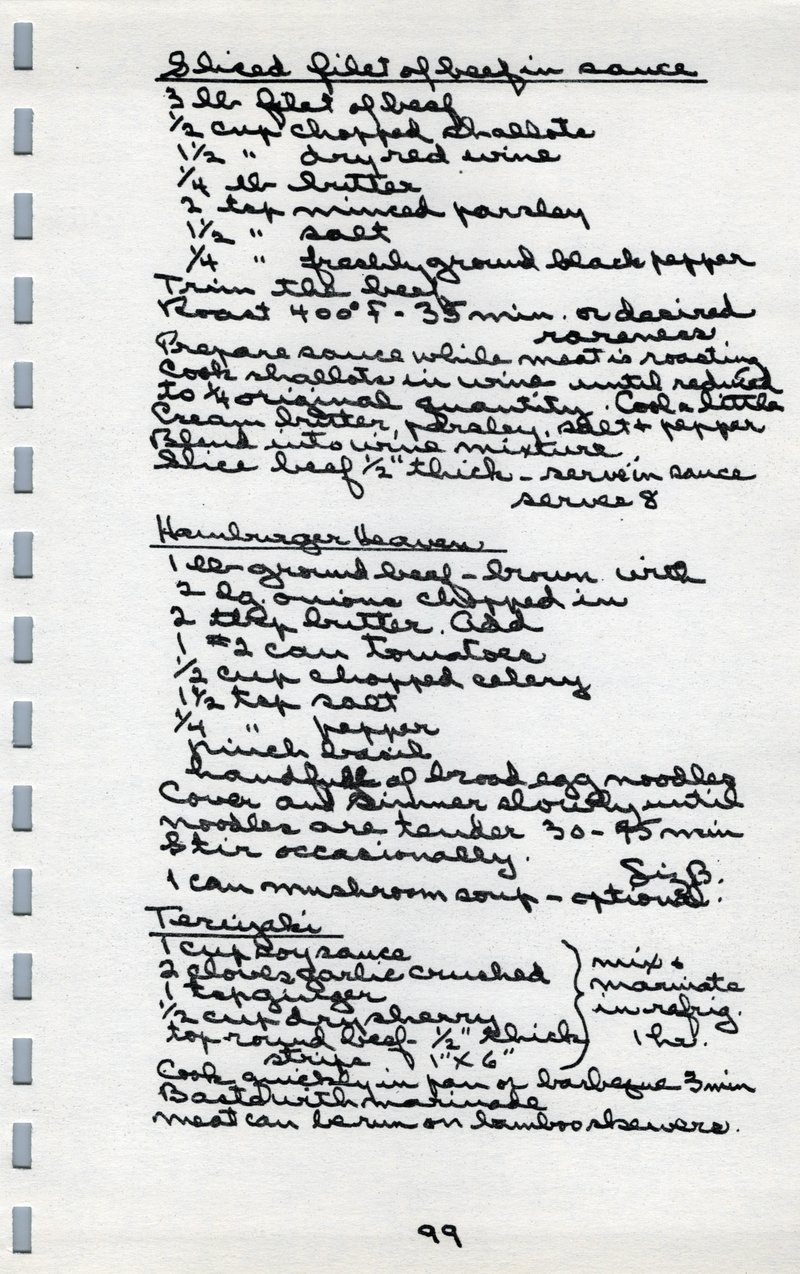 Sliced filet of beef in sauce
3 lb filet of beef
1/2 cup chopped shallots
1 1/2 " dry red wine
1/4 lb butter
2 tsp minced parsley
1 1/2 " salt
1/4 " freshly ground black pepper
Trim the beef
Roast 400° F - 35 min. or desired
rareness.
Prepare sauce while meat is roasting
Cook shallots in wine until reduced
to 1/4 original quantity. Cool a little
Cream butter, parsley, salt + pepper
Blend into wine mixture.
Slice beef 1/2" thick - serve in sauce
serves 8
Hamburger Heaven
1 lb ground beef - brown with
2 lg. onions chopped in
2 tbsp butter. Add
1 #2 can tomatoes
1/2 cup chopped celery
1 1/2 tsp salt
1/4 " pepper
pinch basil
handful of broad egg noodles
Cover and simmer slowly until
noodles are tender 30-45 min
Stir occasionally.
Siz B.
1 can mushroom soup - optional.
Teriyaki
1 cup soy sauce
2 cloves garlic crushed
1 tsp ginger
1/2 cup dry sherry
top round beef - 1/2" thick
strips 1" x 6"
mix +
marinate
in refrig.
1 hr.
Cook quickly in pan or barbeque 3 min
Baste with marinade
meat can be run on bamboo skewers.
99